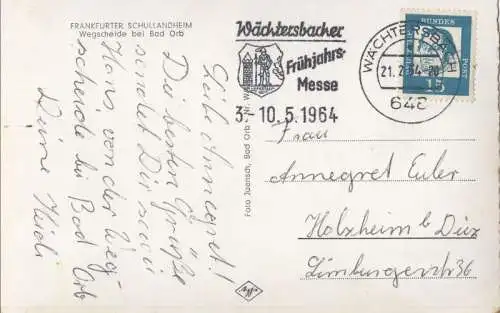 FRANKFURTER SCHULLANDHEIM
Wegscheide bei Bad Orb
Liebe Annegret!
Die besten Grüße
sendet Dir sowie
Hans, von der Weg-
scheide bei Bad Orb
Deine Heidi
Foto Jaensch, Bad Orb
Agfa
Wächtersbacher
Frühjahrs-
Messe
3.-10.5.1964
WÄCHTERSBACH
648
DEUTSCHE
BUNDES
POST
15
Frau
Annegret Euler
Holzheim b Diez
Limburgerstr 36